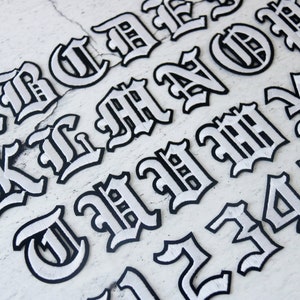 BCDES
KLMNOP
TUVWX
1234